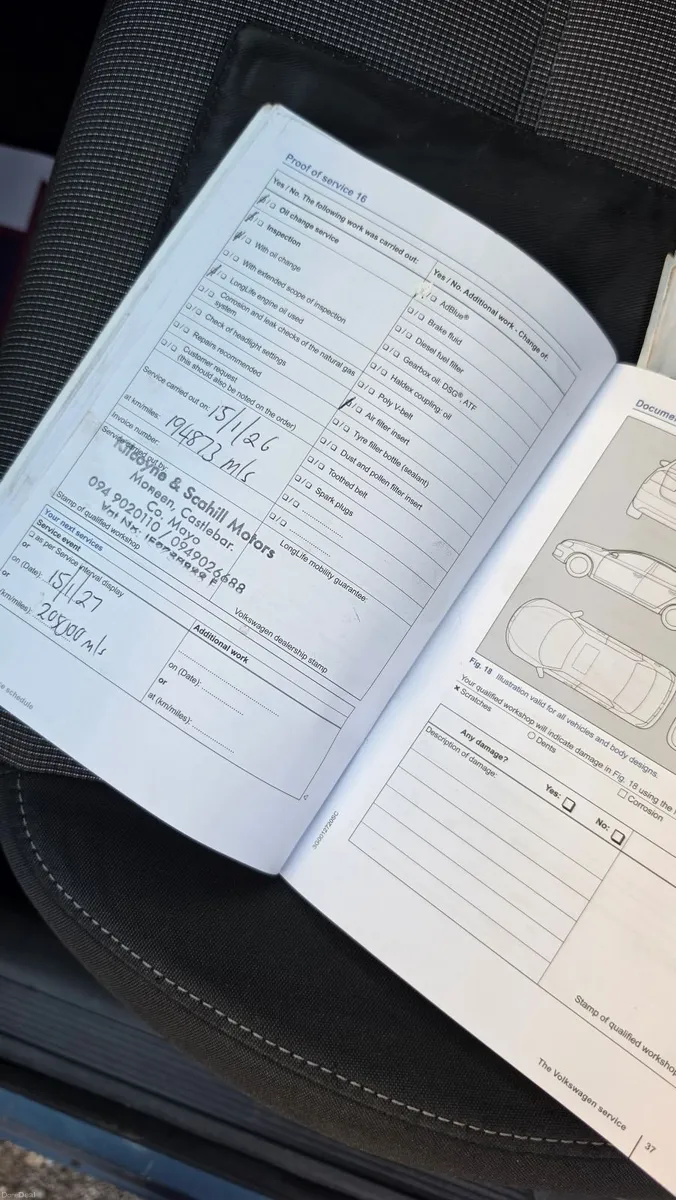 Proof of service 16
Yes / No. The following work was carried out:
☐/☐ Oil change service
☐/☐ Inspection
☐/☐ With oil change
☐/☐ With extended scope of inspection
☐/☐ LongLife engine oil used
☐/☐ Corrosion and leak checks of the natural gas
system
☐/☐ Check of headlight settings
☐/☐ Repairs recommended
☐/☐ Customer request
(this should also be noted on the order)
Service carried out on: 15/1/26
at km/miles: 194873 m/s
Invoice number:
Service carried out by:
Kilcoyne & Scahill Motors
Moneen, Castlebar.
Co. Mayo
094 9020110 / 0949026688
Stamp of qualified workshop
Yes / No. Additional work - Change of:
☐/☐ AdBlue®
☐/☐ Brake fluid
☐/☐ Diesel fuel filter
☐/☐ Gearbox oil: DSG®, ATF
☐/☐ Haldex coupling: oil
☐/☐ Poly V-belt
☐/☐ Air filter insert
☐/☐ Tyre filler bottle (sealant)
☐/☐ Dust and pollen filter insert
☐/☐ Toothed belt
☐/☐ Spark plugs
☐/☐ ............
☐/☐ ............
LongLife mobility guarantee:
Volkswagen dealership stamp
Your next services
Service event
☐ as per Service interval display
or
on (Date): 15/1/27
or
(km/miles): 208000 m/s
Additional work
on (Date):
or
at (km/miles):
ce schedule
3G0012720BC
Fig. 18 Illustration valid for all vehicles and body designs.
Your qualified workshop will indicate damage in Fig. 18 using the
× Scratches
○ Dents
☐ Corrosion
Any damage?
Yes: ☐
No: ☐
Description of damage:
Stamp of qualified workshop
The Volkswagen service
37
DoneDeal